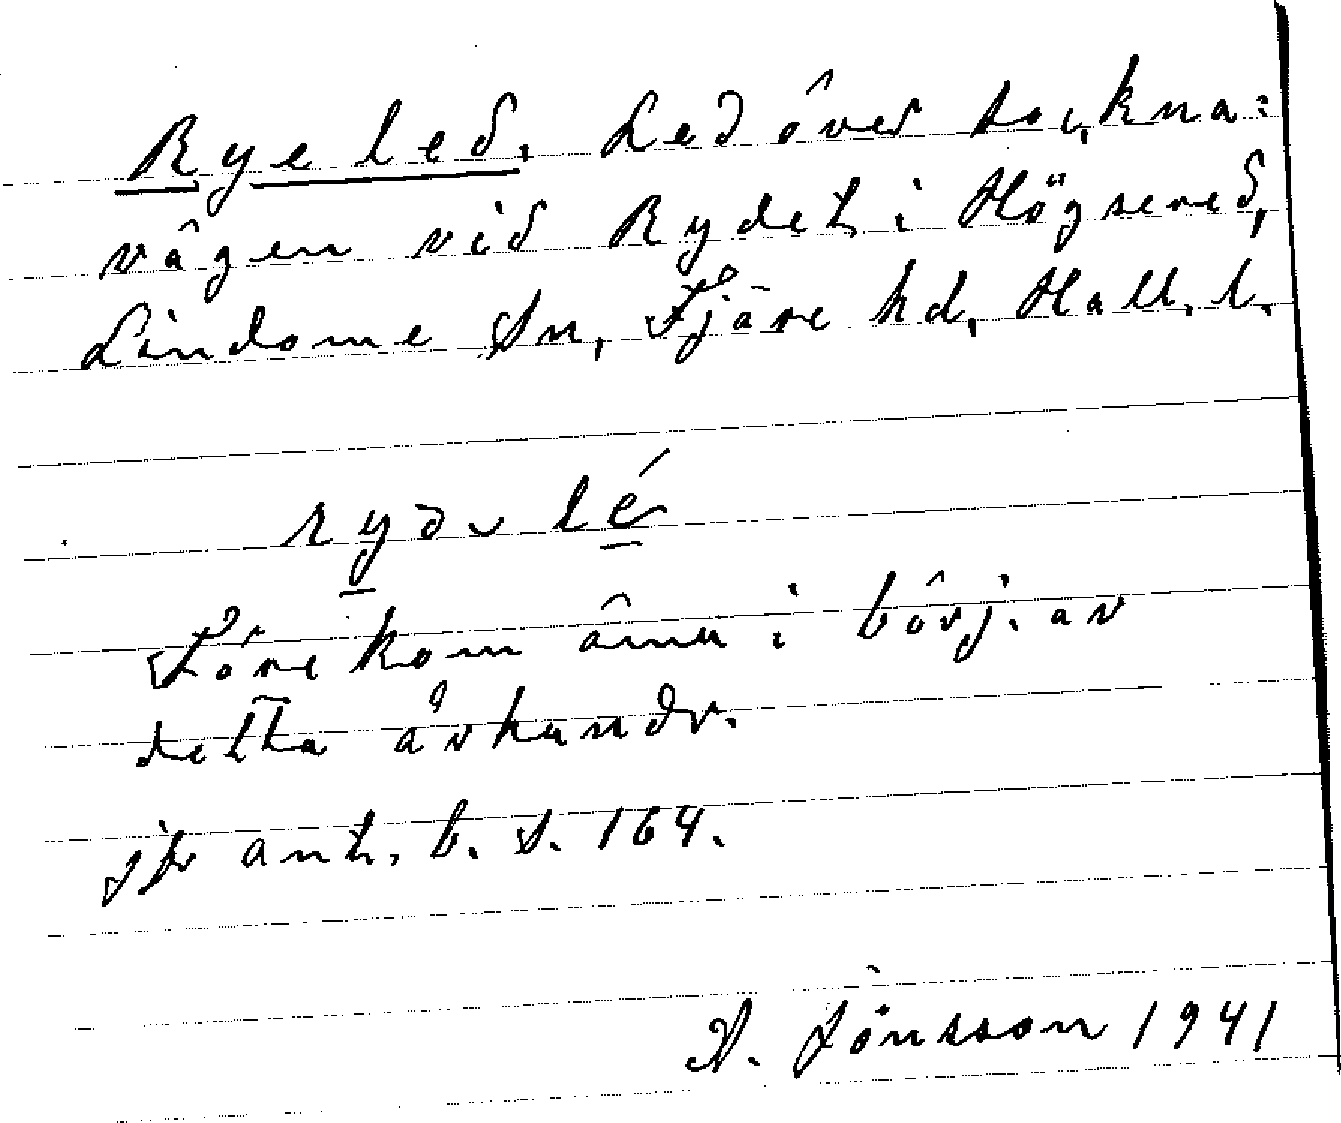 Rye led. Led över sockna=
vägen vid Rydet i Högsered,
Lindome Sn, Fjäre hd, Hall. l.
lé
Förekom ännu i börj. av
detta århundr.
jfr ant. b. s. 164.
A. Jönsson 1941